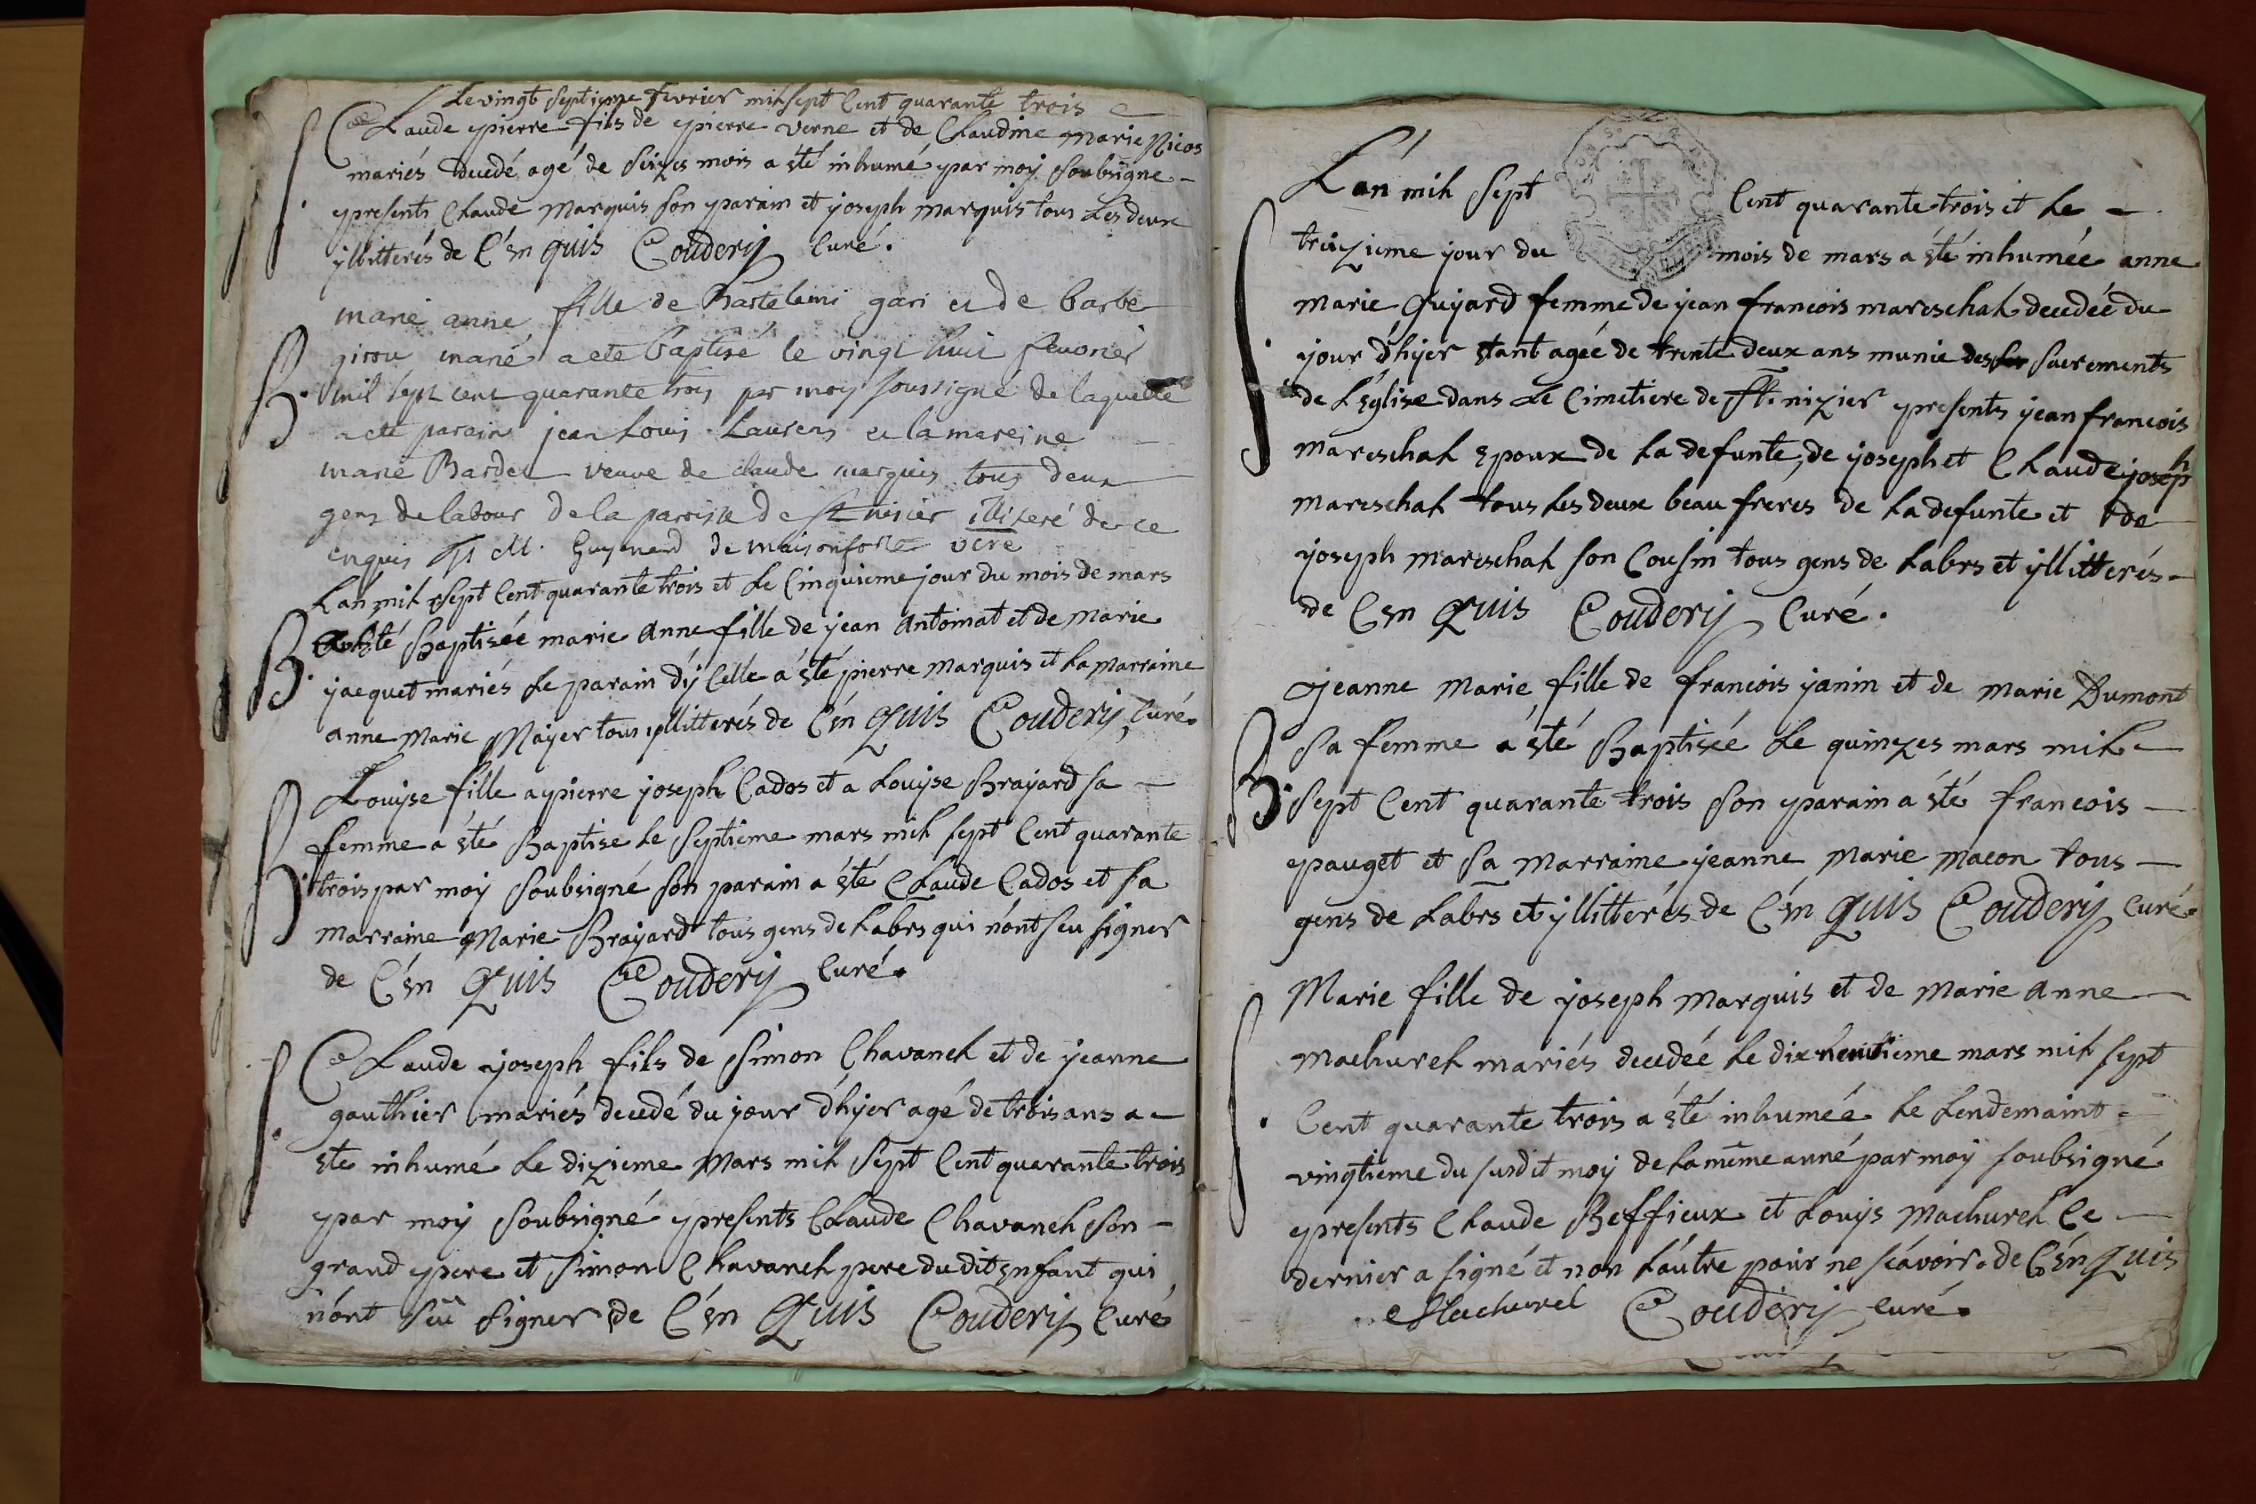 Le vingt septieme fevrier mil sept Cent quarante trois
S. Claude pierre fils de pierre verne et de Claudine Marie Nicos
mariés decedé agé de seizes mois a été inhumé par moy soubsigné
presents Claude Marquis son parain et joseph marquis tous Les deux
yllitterés de C'en quis Couderij Curé.
marie anne fille de Bartelemi gari et de barbe
girou marié a ete baptisé le vingt huit fevrier
B. mil sept cent quarante trois par moy soussigné de laquelle
a ete parain jean Louis Laurens et la mareine
marie Bardet veuve de claude marquis tous deux
gens de labour de la paroisse de st nisier illiteré de ce
enquis M. Guyenard de maisonforte vcre
Lan mil sept Cent quarante trois et Le Cinquieme jour du mois de mars
B. a été Baptisée marie Anne fille de jean Antoinat et de Marie
jacquet mariés Le parain d'y Celle a été pierre marquis et La marraine
anne Marie Mayer tous yllitterés de C'en quis Couderij Curé.
Louyse fille a pierre joseph Cados et a Louyse Brayard sa
femme a été Baptise Le septieme mars mil sept Cent quarante
B. trois par moy soubsigné son parain a été Claude Cados et sa
marraine Marie Brayard tous gens de Labrs qui n'ont seu signer
de C'en quis Couderij Curé.
S. Claude joseph fils de Simon Chavanel et de jeanne
gauthier mariés decedé du jour d'hijer agé de trois ans a
ete inhumé Le dizieme Mars mil sept Cent quarante trois
par moy soubsigné presents Claude Chavanel son
grand pere et simon Chavanel pere dudit enfant qui
n'ont seu signer de C'en quis Couderij Curé
L'an mil sept Cent quarante trois et Le
S. treizieme jour du mois de mars a été inhumée anne
marie Guyard femme de jean francois mareschal decedée du
jour d'hijer etant agée de trente deux ans munie des sacrements
de L'Eglise dans Le Cimetiere de st. nizier presents jean francois
mareschal epoux de La defunte, de joseph et Claude joseph
mareschal tous Les deux beau freres de La defunte et de
joseph mareschal son Cousin tous gens de Labrs et yllitterés
de C'en quis Couderij Curé.
Jeanne Marie fille de francois janin et de marie Dumont
sa femme a été Baptisée Le quinzes mars mil
B. sept Cent quarante trois son parain a été francois
pauget et sa marraine jeanne Marie macon tous
gens de Labrs et yllitterés de C'en quis Couderij Curé.
Marie fille de joseph Marquis et de marie Anne
S. Machurel mariés decedée Le dix neuvieme mars mil sept
Cent quarante trois a été inhumée Le Lendemaint
vingtieme du susdit moy de La même anné par moy soubsigné
presents Claude Beffieux et Louys Machurel Ce
dernier a signé et non L'autre pour ne scavoir. de C'en quis
Machurel Couderij Curé.